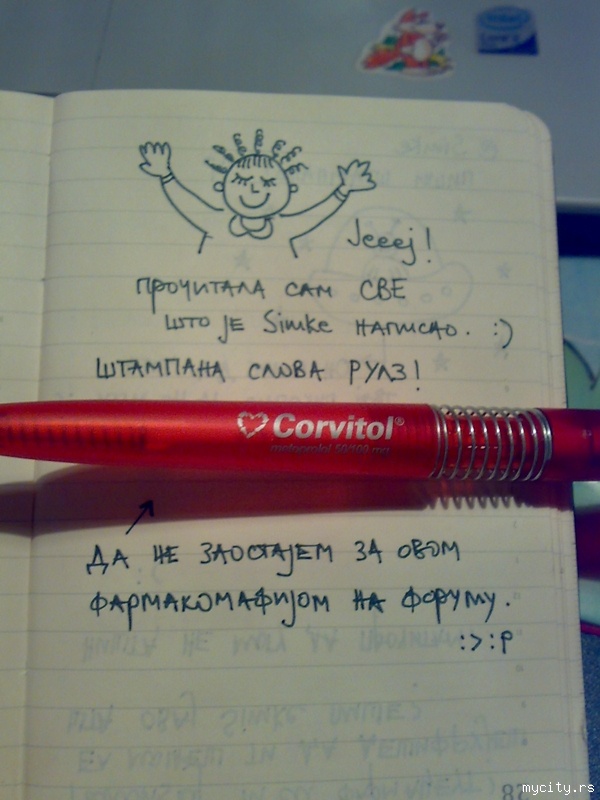 Jeeej!
ПРОЧИТАЛА САМ СВЕ
ШТО ЈЕ Simke НАПИСАО. :)
ШТАМПАНА СЛОВА РУЛЗ!
Corvitol®
metoprolol 50/100 mg
ДА НЕ ЗАОСТАЈЕМ ЗА ОВОМ
ФАРМАКОМАФИЈОМ НА ФОРУМУ.
:>:P
mycity.rs